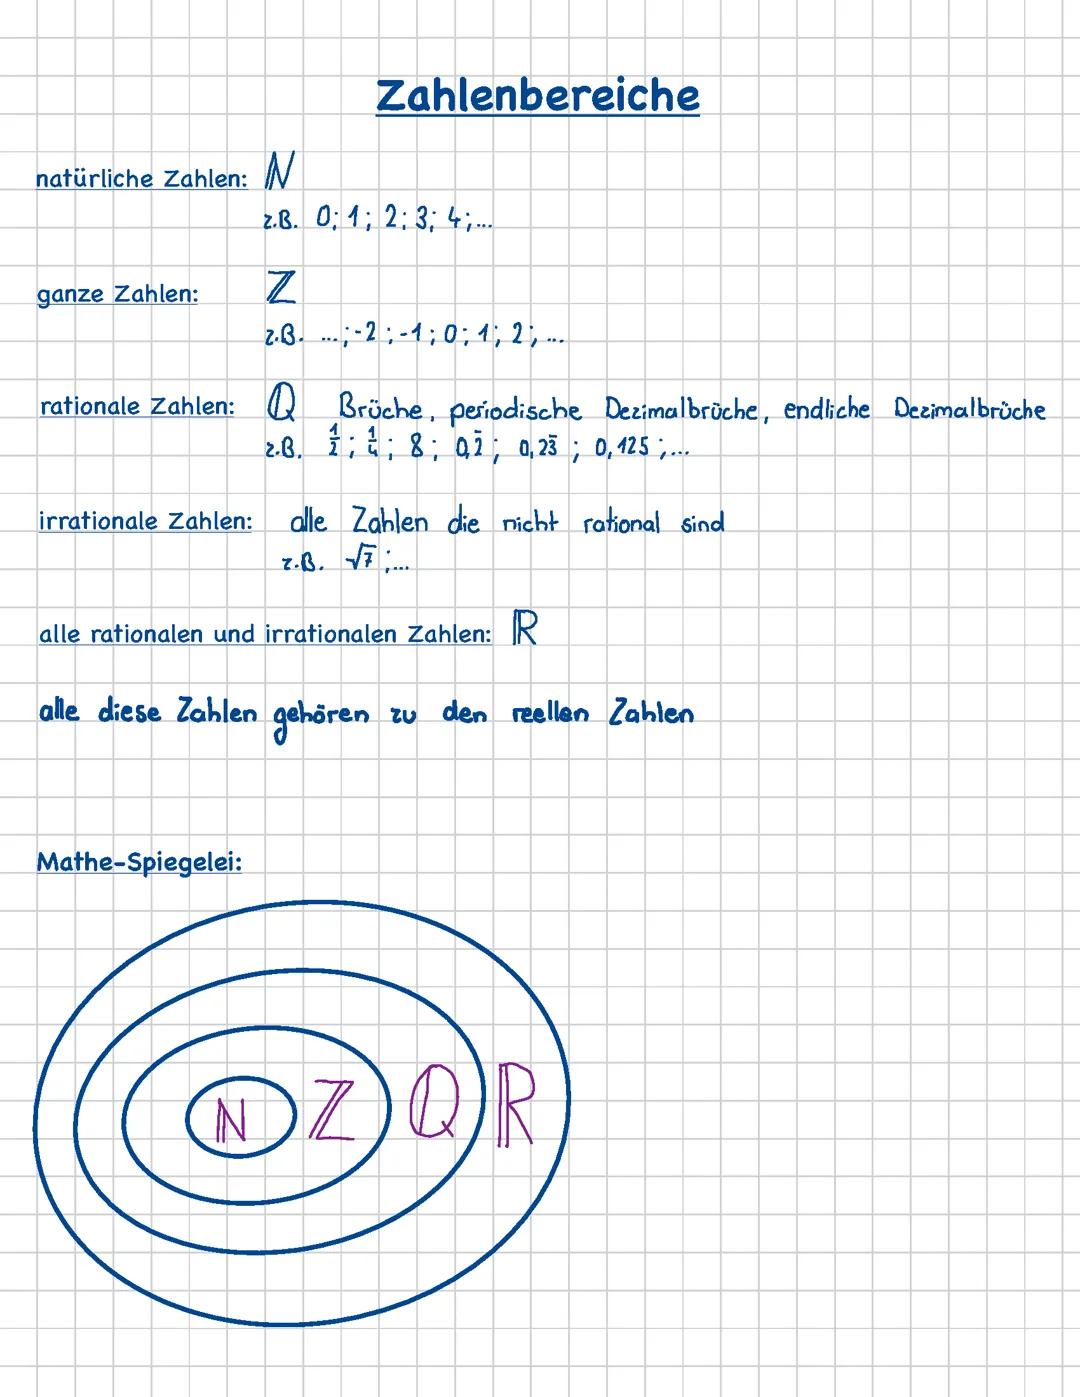 Zahlenbereiche
natürliche Zahlen: ℕ
z.B. 0; 1; 2; 3; 4;...
ganze Zahlen: ℤ
z.B. ...;-2;-1; 0; 1; 2;...
rationale Zahlen: ℚ Brüche, periodische Dezimalbrüche, endliche Dezimalbrüche
z.B. 1/2; 1/4; 8; 0,2̅; 0,23̅; 0,125;...
irrationale Zahlen: alle Zahlen die nicht rational sind
z.B. √7;...
alle rationalen und irrationalen Zahlen: ℝ
alle diese Zahlen gehören zu den reellen Zahlen
Mathe-Spiegelei:
ℕ ℤ ℚ ℝ